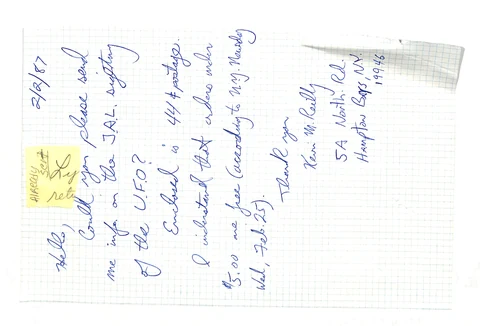 2/2/87
ALREADY
sent
Hello,
Could you please send
me info. on the J.A.L. sighting
of the U.F.O?
Enclosed is 44¢ postage.
I understand that orders under
$5.00 are free (according to N.Y. Newsday
Wed, Feb. 25).
Thank you
Kevin M. Reilly
5A North Rd.
Hampton Bays, NY.
11946